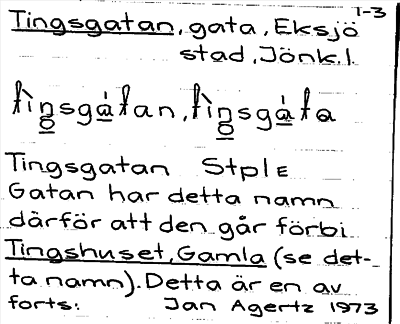 1-3
Tingsgatan, gata, Eksjö
stad, Jönk.l.
Tingsgatan Stpl E
Gatan har detta namn
därför att den går förbi
Tingshuset, Gamla (se det-
ta namn). Detta är en av
forts: Jan Agertz 1973